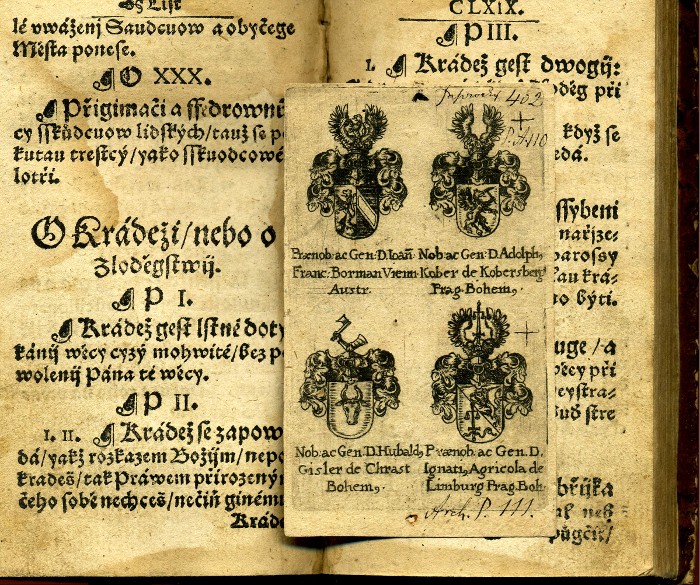 List
lé uwáženj Saudcuow a obyčege
Mėsta ponese.
O XXX.
Přigimači a ssedrownj
cy sskůdcuow lidských/tauž se po
kutau tresstcý/yako sskuodcowé
lotři.
O Krádeži/nebo o
Zlodėgstwij.
P I.
Krádež gest lstné doty
kánij wėcy cyzý mohwité/bez po
wolenij Pána té wėcy.
P II.
I. II. Krádež se zapow
dá/yakž rozkazem Božijm/nepo
kradeš/tak Práwem přirozeným
čeho sobė nechceš/nečiň ginému
Kráde
CLXIX.
P III.
I. Krádež gest dwogij:
dėg při
když se
edá.
ssybeni
nařjze-
parossy
tau krá-
to býti.
uge/a
wėcy při
eystra-
Buď stře
břijka
neb
půgčij/
402
P. A110
Prænob: ac Gen: D. Ioañ:
Franc: Borman Vienn:
Austr:
Nob: ac Gen: D. Adolph,
Kober de Kobersberg
Prag: Bohem,
Nob: ac Gen: D. Hubald,
Gisler de Chrast
Bohem,
Prænob: ac Gen: D.
Ignati, Agricola de
Limburg Prag: Boh:
Arch. P. 111.